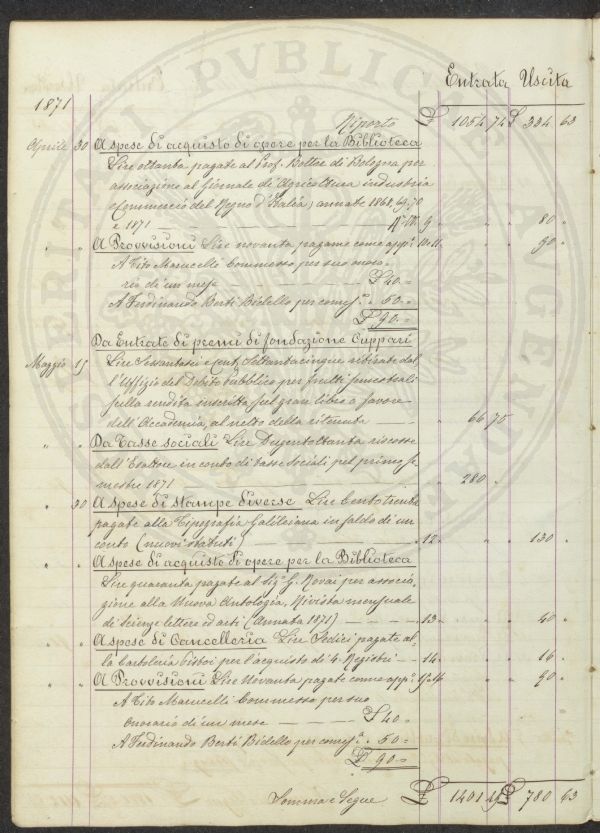 Entrata Uscita
1871
Riporto £ 1054 74 £ 334 63
Aprile 30 A spese di acquisto di opere per la Biblioteca
Lire ottanta pagate al Prof. Botter di Bologna per
associazione al Giornale di Agricoltura industria
e Commercio del Regno d'Italia, annate 1868, 69, 70
e 1871 — 9 " " 80 "
" " A Provvisioni Lire novanta pagame come app.i 10 e 11 " " 90 "
A Tito Marucelli Commesso per suo onora-
rio di un mese — £ 40 "
A Ferdinando Berti Bidello per come s.a " 50 "
£ 90 "
Da Entrate di premi di fondazione Cuppari
Maggio 15 Lire Sessantasei e Cent. Settantacinque ritirate dal
l'Uffizio del Debito pubblico per frutti semestrali
sulla rendita inscritta sul gran libro a favore
dell'Accademia, al netto della ritenuta — " 66 75
" " Da Tasse sociali Lire Dugentottanta riscosse
dall'Esattore in conto di tasse sociali pel primo se
mestre 1871 — " 280 "
" 30 A spese di stampe diverse Lire Cento trenta
pagate alla Tipografia Galileiana in saldo di un
conto (nuovi statuti) — 12 " " 130 "
" " A spese di acquisto di opere per la Biblioteca
Lire quaranta pagate al Sig.r G. Novai per associa
zione alla Nuova Antologia, Rivista mensuale
di scienze lettere ed arti (Annata 1871) — 13 " " 40 "
" " A spese di Cancelleria Lire Sedici pagate al-
la Cartoleria Pistoi per l'acquisto di 4 Registri — 14 " " 16 "
" " A Provvisioni Lire Novanta pagate come app.i " " 90 "
A Tito Marucelli Commesso per suo
Onorario di un mese — £ 40 "
A Ferdinando Berti Bidello per come s.a " 50 "
£ 90 "
Somma e Segue £ 1401 49 £ 780 63